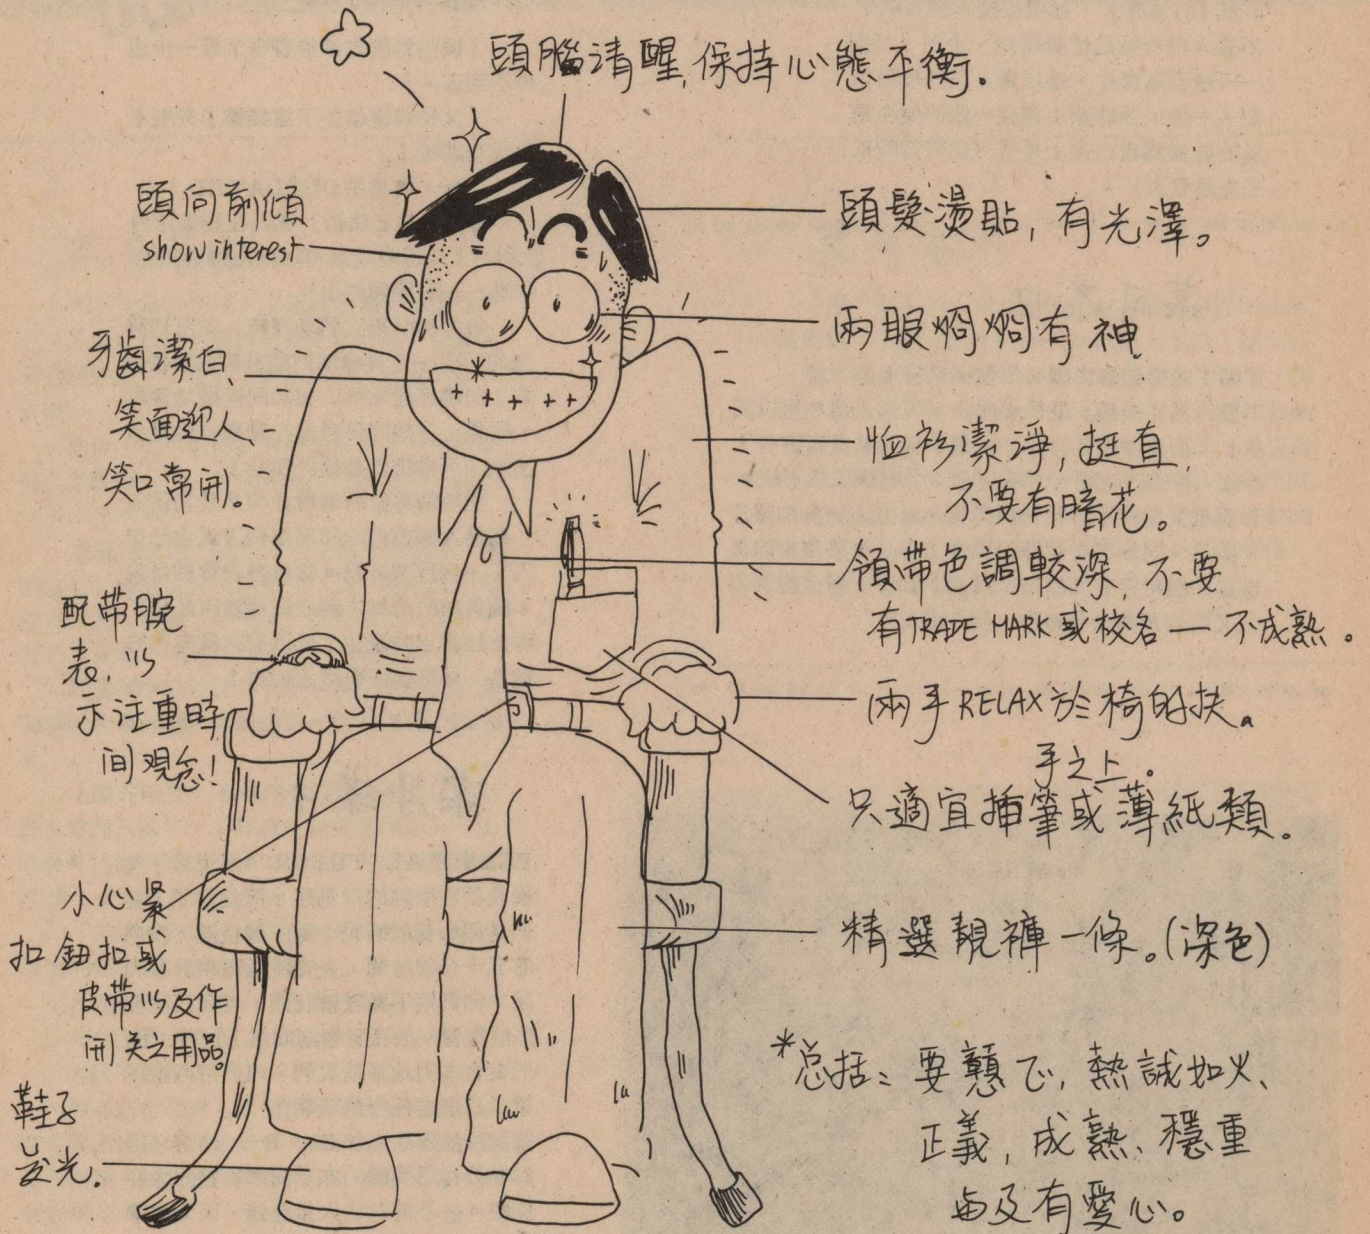 頭腦清醒,保持心態平衡.
頭向前傾
show interest
頭髮燙貼,有光澤。
兩眼炯炯有神
牙齒潔白、
笑面迎人、
笑口常開。
恤衫潔淨,挺直,
不要有暗花。
領帶色調較深,不要
有TRADE MARK或校名一不成熟。
配帶腕
表,以
示注重時
间观念!
兩手RELAX於椅的扶
手之上。
只適宜插筆或薄紙類。
小心緊
扣鈕扣或
皮带以及作
開关之用品。
精選靚褲一條。(深色)
鞋子
发光.
*总括:要戇正,熱誠如火、
正義,成熟、穩重
以及有愛心。